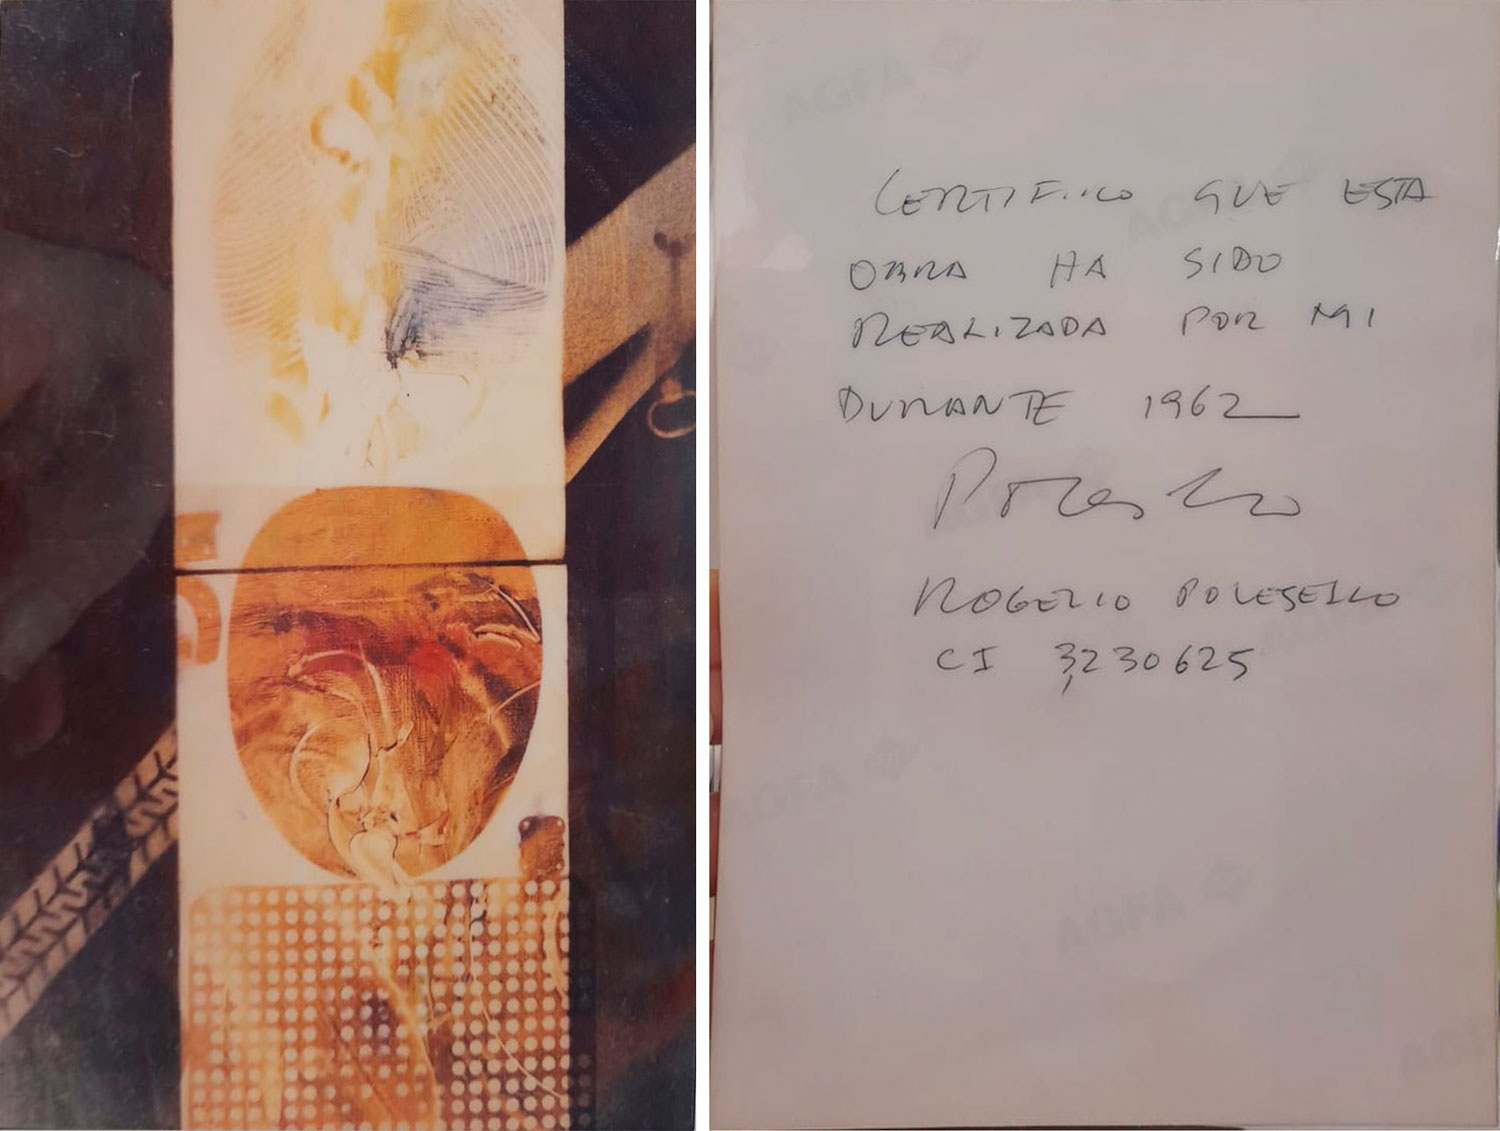 CERTIFICO QUE ESTA
OBRA HA SIDO
REALIZADA POR MI
DURANTE 1962
Polesello
ROGELIO POLESELLO
CI 3,230625
AGFA
AGFA
AGFA
AGFA
AGFA
AGFA